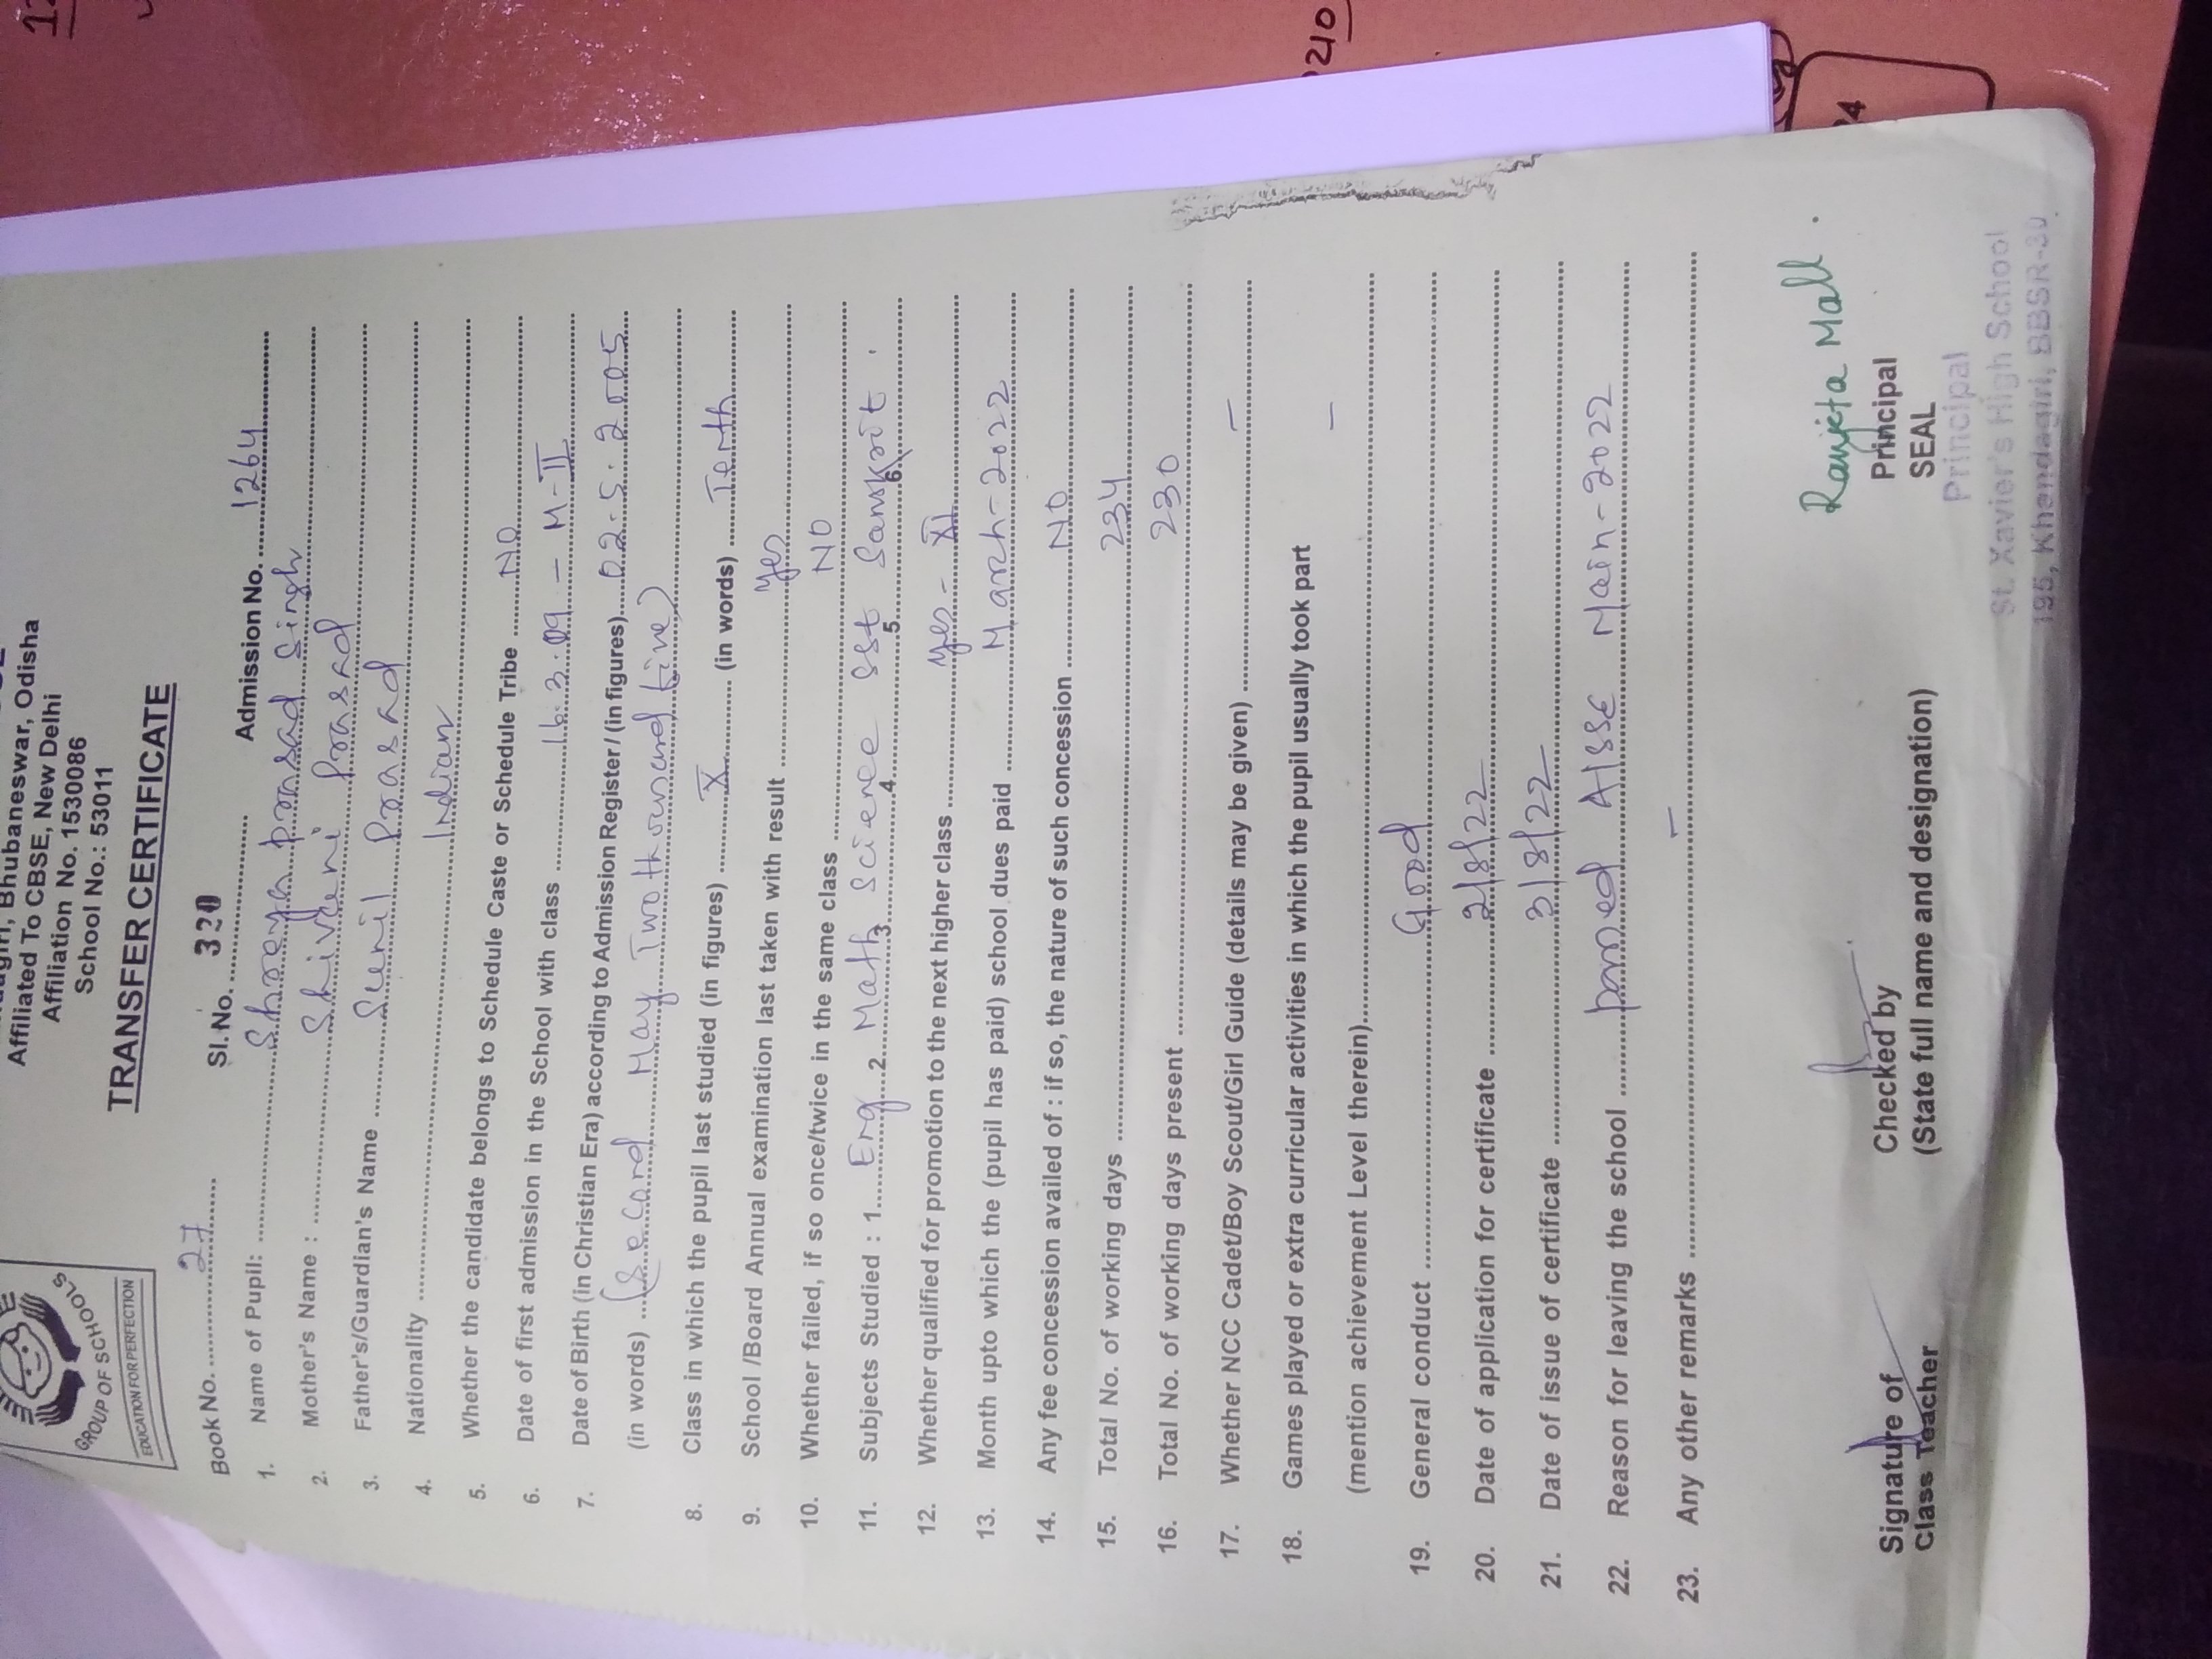 Bhubaneswar, Odisha
Affiliated To CBSE, New Delhi
Affiliation No. 1530086
School No.: 53011
TRANSFER CERTIFICATE
GROUP OF SCHOOLS
EDUCATION FOR PERFECTION
Book No. 27 Sl. No. 320 Admission No. 1264
1. Name of Pupil: Shreya prasad Singh
2. Mother's Name : Shivani Prasad
3. Father's/Guardian's Name Sunil Prasad
4. Nationality Indian
5. Whether the candidate belongs to Schedule Caste or Schedule Tribe NO
6. Date of first admission in the School with class 16.3.09 - M-II
7. Date of Birth (in Christian Era) according to Admission Register / (in figures) 02.5.2005
(in words) (Second May Two thousand five)
8. Class in which the pupil last studied (in figures) X (in words) Tenth
9. School /Board Annual examination last taken with result Yes
10. Whether failed, if so once/twice in the same class NO
11. Subjects Studied : 1. Eng 2 Math 3 Science 4 SSt 5. Sanskrit 6.
12. Whether qualified for promotion to the next higher class yes - XI
13. Month upto which the (pupil has paid) school dues paid March-2022
14. Any fee concession availed of : if so, the nature of such concession NO
15. Total No. of working days 234
16. Total No. of working days present 230
17. Whether NCC Cadet/Boy Scout/Girl Guide (details may be given) -
18. Games played or extra curricular activities in which the pupil usually took part -
(mention achievement Level therein)
19. General conduct Good
20. Date of application for certificate 2/8/22
21. Date of issue of certificate 3/8/22
22. Reason for leaving the school passed AISSE Main-2022
23. Any other remarks -
Ranjeta Mall.
Signature of Checked by Principal
Class Teacher (State full name and designation) SEAL
Principal
St. Xavier's High School
195, Khandagiri, BBSR-30